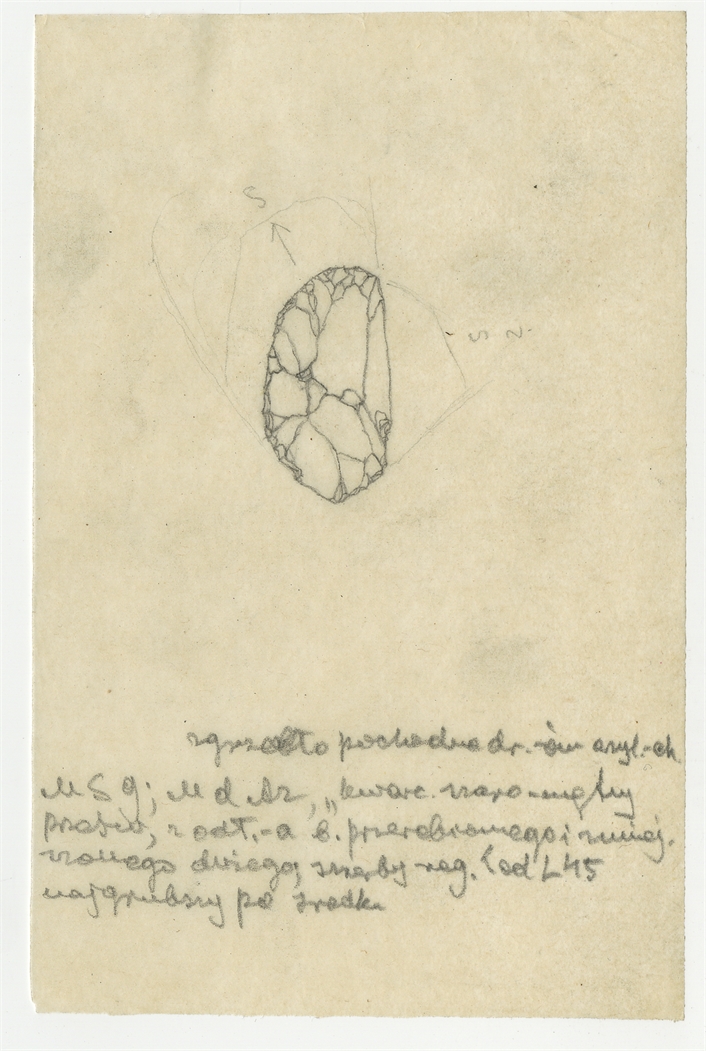 S
S N.
zgrzebło pochodne dr.-ów azyl.-ch
M S g; M d Az, „kwarc. szaro-mętny
prosto, z odł.-a b. przerobionego i zmniej.
szonego dużego, szerby reg. od L 45
najgrubszy po środku